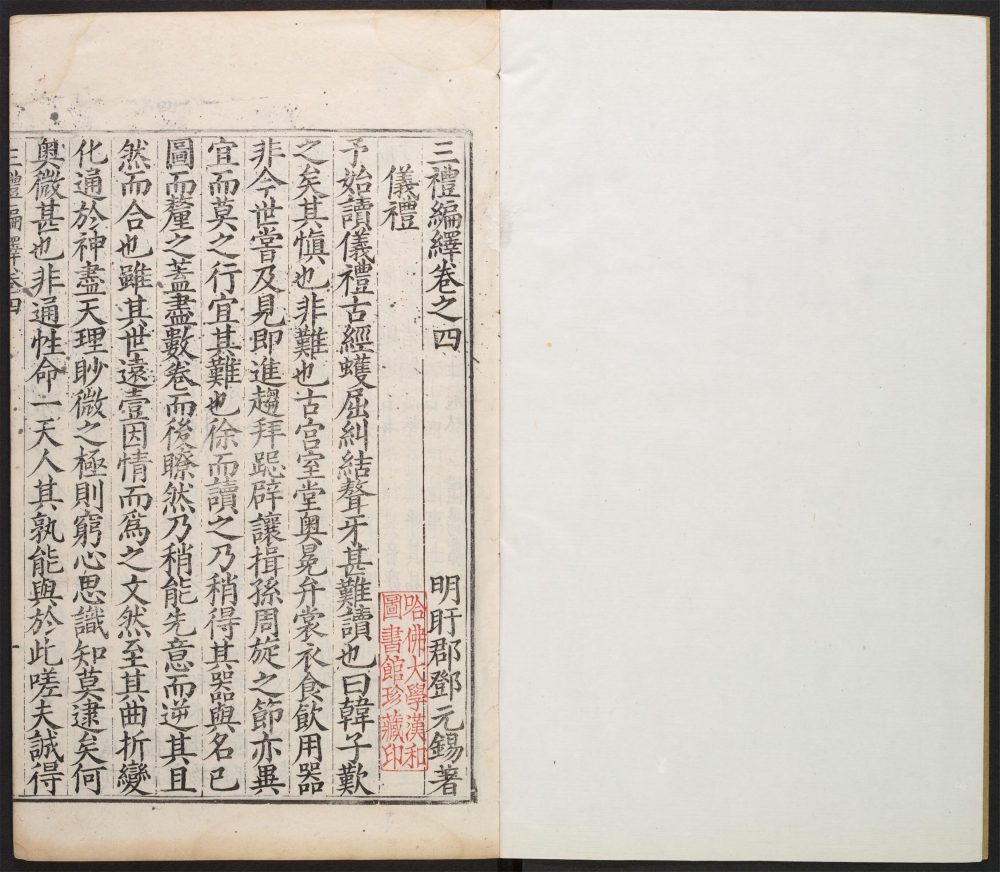 三禮編繹卷之四 明盱郡鄧元錫著
儀禮
哈佛大學漢和
圖書館珍藏印
予始讀儀禮古經蠖屈糾結聱牙甚難讀也曰韓子歎
之矣其慎也非難也古宫室堂奥冕弁裳衣食飲用器
非今世嘗及見即進趨拜跽辟讓揖孫周旋之節亦異
宜而莫之行宜其難也徐而讀之乃稍得其器與名已
圖而釐之蓋盡數卷而後瞭然乃稍能先意而逆其且
然而合也雖其世遠壹因情而爲之文然至其曲折變
化通於神盡天理眇微之極則窮心思識知莫逮矣何
奥微甚也非通性命一天人其孰能與於此嗟夫誠得
三禮編繹卷四 一